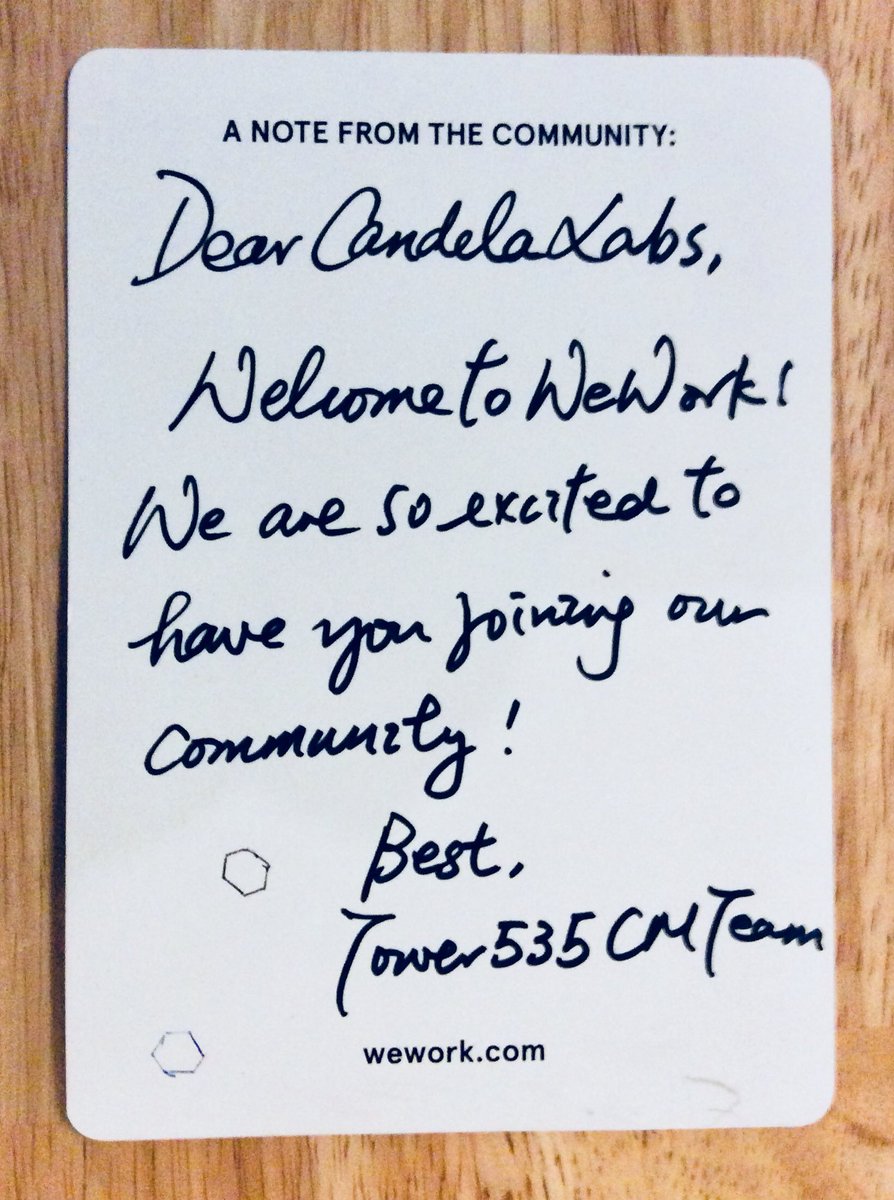 A NOTE FROM THE COMMUNITY:
Dear Candela Labs,
Welcome to WeWork!
We are so excited to
have you joining our
community!
Best,
Tower 535 CM Team
wework.com